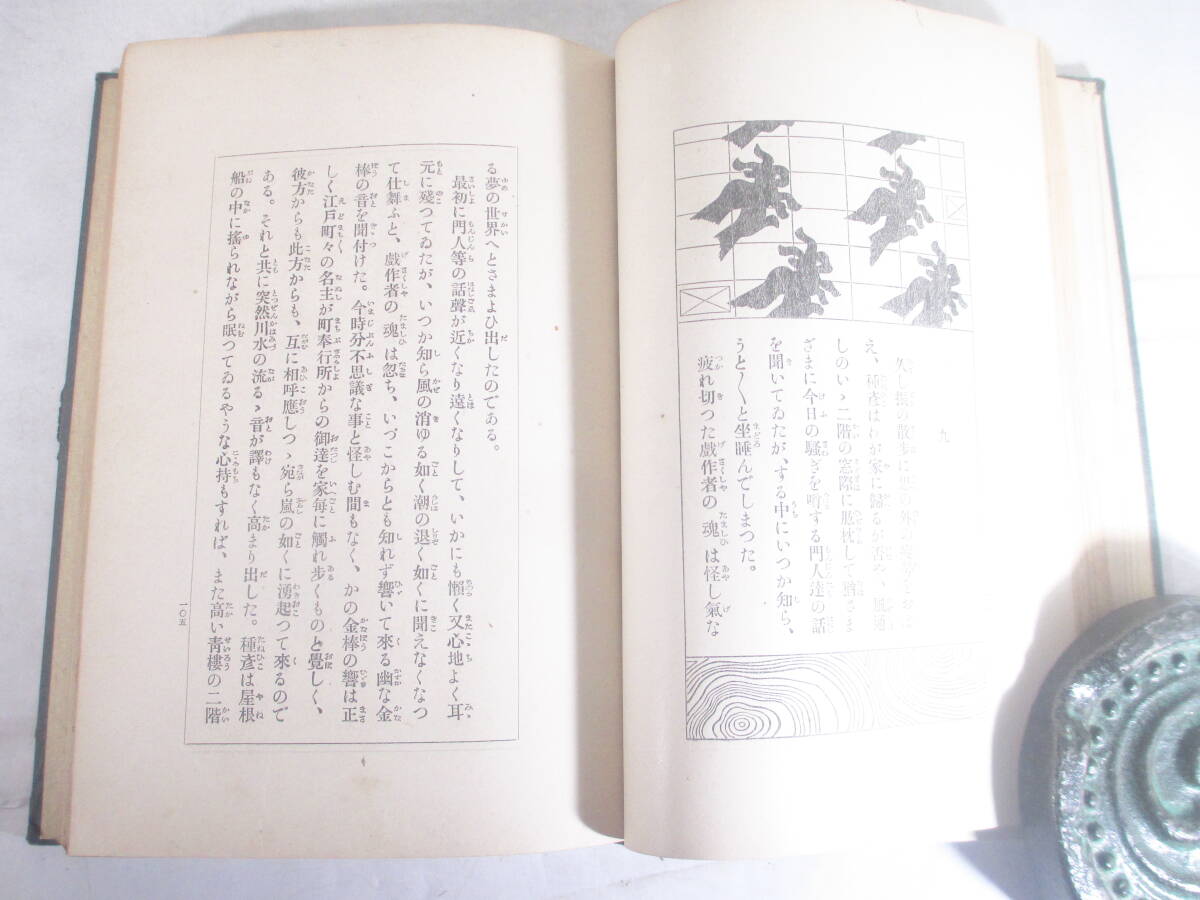 九
久し振の散歩に思の外の疲勞をおぼ
え、種彦はわが家に歸るが否や、風通
しのいゝ二階の窓際に肱枕して猶さま
ざまに今日の騷ぎを噂する門人達の話
を聞いてゐたが、する中にいつか知ら、
うと〳〵と坐睡んでしまつた。
疲れ切つた戯作者の魂は怪し氣な
る夢の世界へとさまよひ出したのである。
最初に門人等の話聲が近くなり遠くなりして、いかにも懶く又心地よく耳
元に殘つてゐたが、いつか知ら風の消ゆる如く潮の退く如くに聞えなくなつ
て仕舞ふと、戯作者の魂は忽ち、いづこからとも知れず響いて來る幽な金
棒の音を聞付けた。今時分不思議な事と怪しむ間もなく、かの金棒の響は正
しく江戸町々の名主が町奉行所からの御達を家毎に觸れ歩くものと覺しく、
彼方からも此方からも、互に相呼應しつゝ宛ら嵐の如くに湧起つて來るので
ある。それと共に突然川水の流るゝ音が譯もなく高まり出した。種彦は屋根
船の中に搖られながら眠つてゐるやうな心持もすれば、また高い靑樓の二階
一〇五